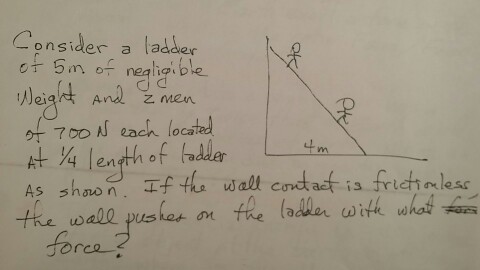 Consider a ladder
of 5m of negligible
Weight and 2 men
of 700 N each located
At 1/4 length of ladder
4m
As shown. If the wall contact is frictionless,
the wall pushes on the ladder with what
force?